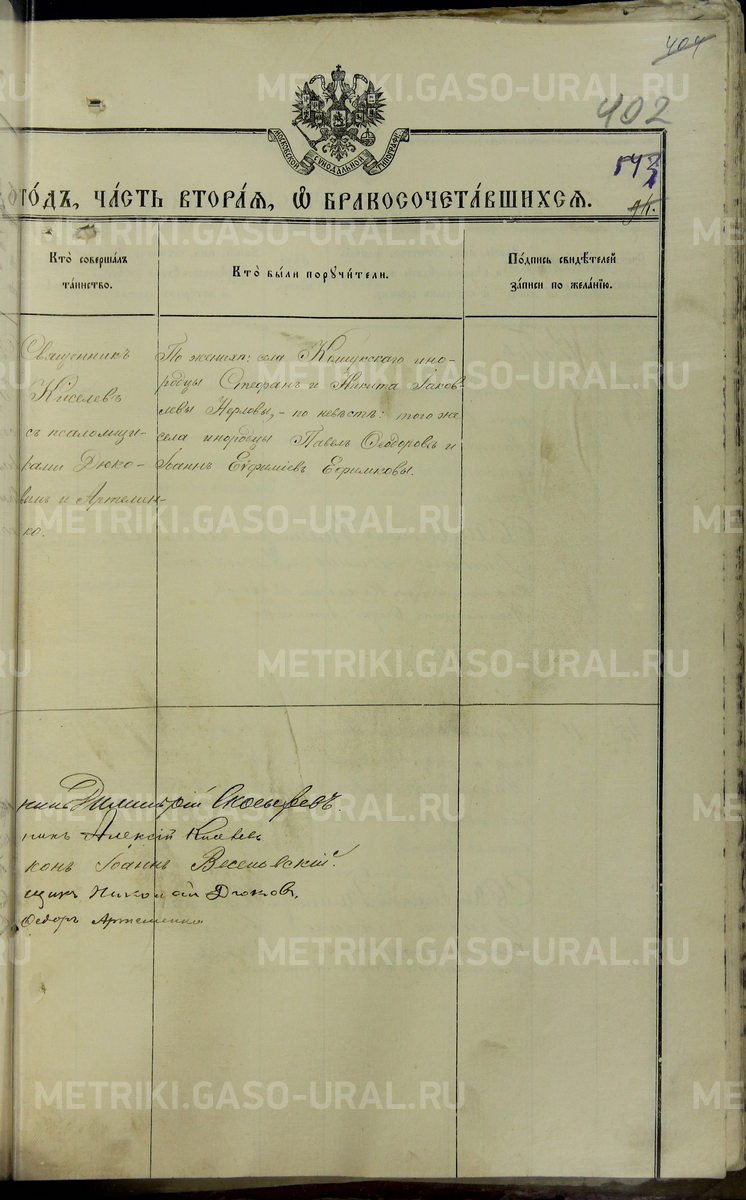 404
402
МОСКОВСКОЙ СѴНОДАЛЬНОЙ ТИПОГРАФІИ
ГО́ДЪ, ЧА́СТЬ ВТОРА́Я, Ѽ БРАКОСОЧЕТА́ВШИХСЯ.
Кто̀ соверша́лъ
та́инство.
Кто̀ бы́ли порꙋчи́тели.
По́дпись свидѣ́телей
за́писи по жела́нїю.
Священникъ
Киселевъ
съ псаломщи-
ками Дюко-
вымъ и Артемен-
ко.
По женихѣ: села Кошукскаго ино-
родцы Стефанъ и Никита Іаков-
левы, - по невѣстѣ: того же
села инородцы Павелъ Ѳеодоровъ и
Іоаннъ Евѳиміевъ Ефимковы.
Димитрій
никъ Алексій Киселевъ
конъ Іоаннъ Веселовскій.
щикъ Николай Дюковъ.
Ѳедоръ Артеменко
METRIKI.GASO-URAL.RU